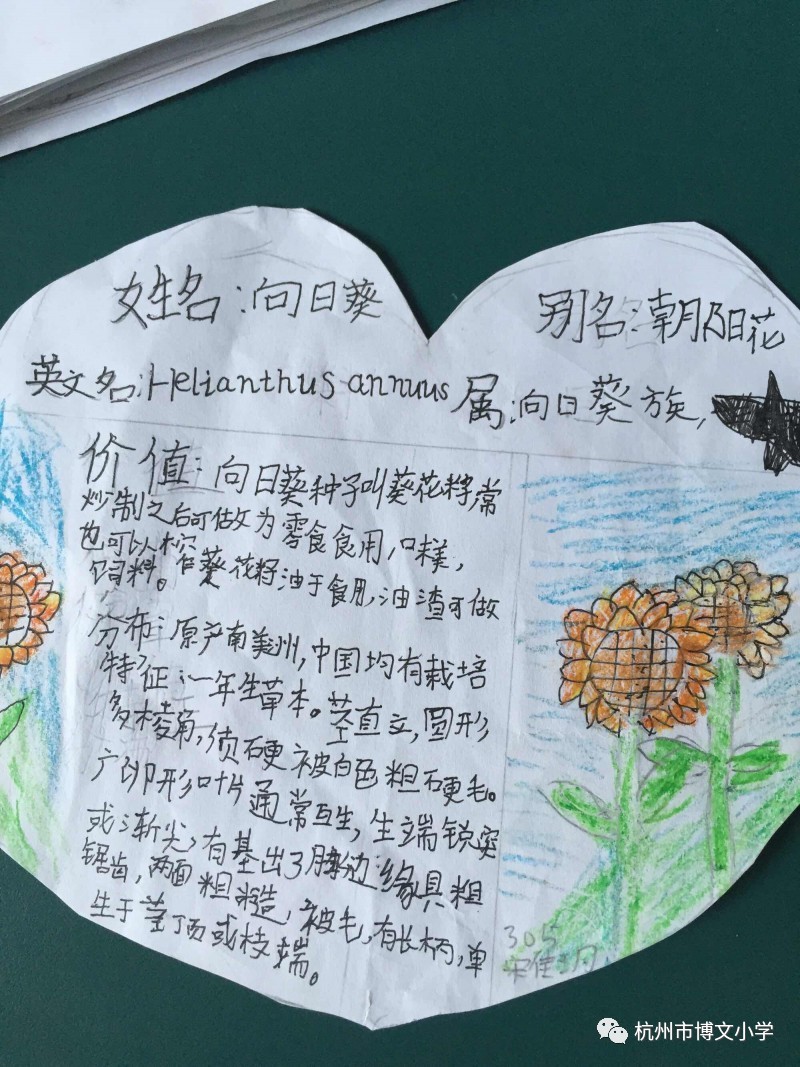 姓名:向日葵
别名:朝阳花
英文名:Helianthus annuus 属:向日葵族,
价值:向日葵种子叫葵花籽,常
炒制之后可做为零食食用,口味美,
也可以榨葵花籽油于食用,油渣可做
饲料。
分布:原产南美州,中国均有栽培
特征:一年生草本。茎直立,圆形
多棱角,质硬被白色粗硬毛。
广卵形叶片通常互生,生端锐突
或渐尖,有基出3脉,边缘具粗
锯齿,两面粗糙,被毛,有长柄,单
生于茎顶或枝端。
305
杭州市博文小学